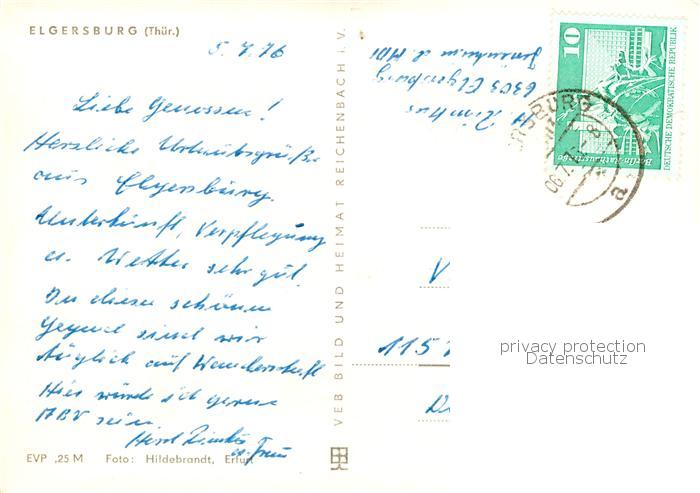 ELGERSBURG (Thür.)
5.7.76
Liebe Genossen!
Herzliche Urlaubsgrüße
aus Elgersburg.
Unterkunft, Verpflegung
u. Wetter sehr gut.
In dieser schönen
Gegend sind wir
täglich auf Wanderschaft
Hier würde ich gerne
ABV sein.
Horst
u. Frau
EVP ,25 M Foto: Hildebrandt, Erfurt
VEB BILD UND HEIMAT REICHENBACH I. V.
6303 Elgersburg
10
DEUTSCHE DEMOKRATISCHE REPUBLIK
Berlin-Rathausstraße
a
V
115
privacy protection
Datenschutz